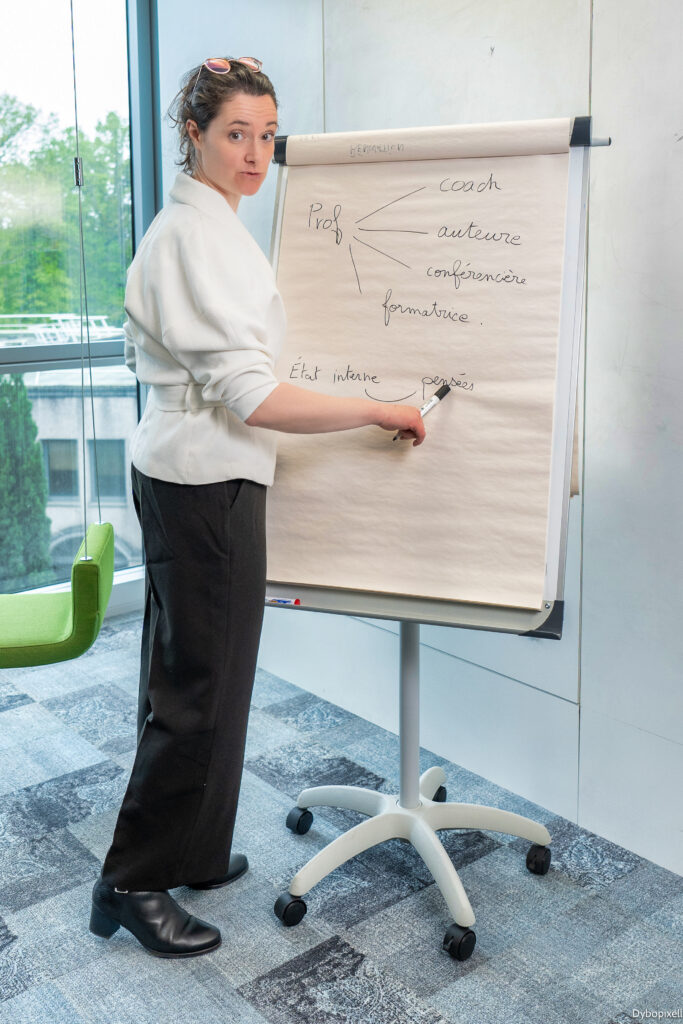 Prof
coach
auteure
conférencière
formatrice.
État interne pensées
Dybopixell